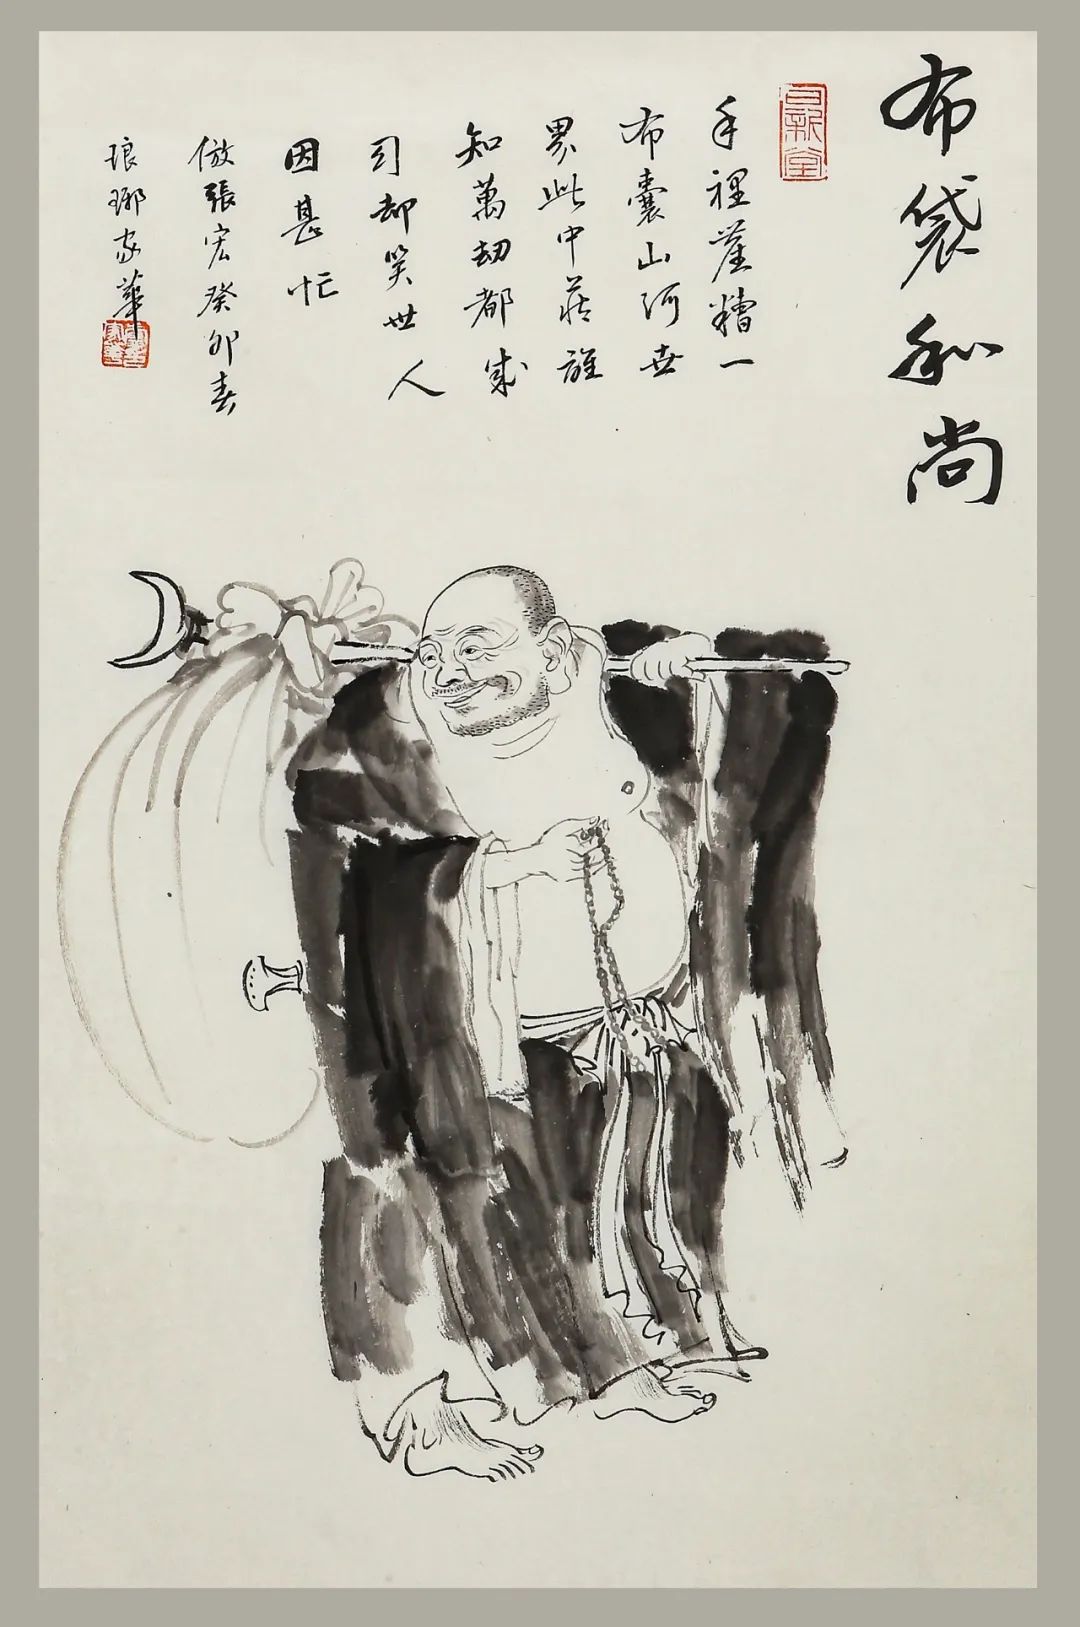 布袋和尚
日新堂
手裡糟一
布囊山河世
界此中藏誰
知萬劫都成
幻却笑世人
因甚忙
倣張宏癸卯春
琅琊家華